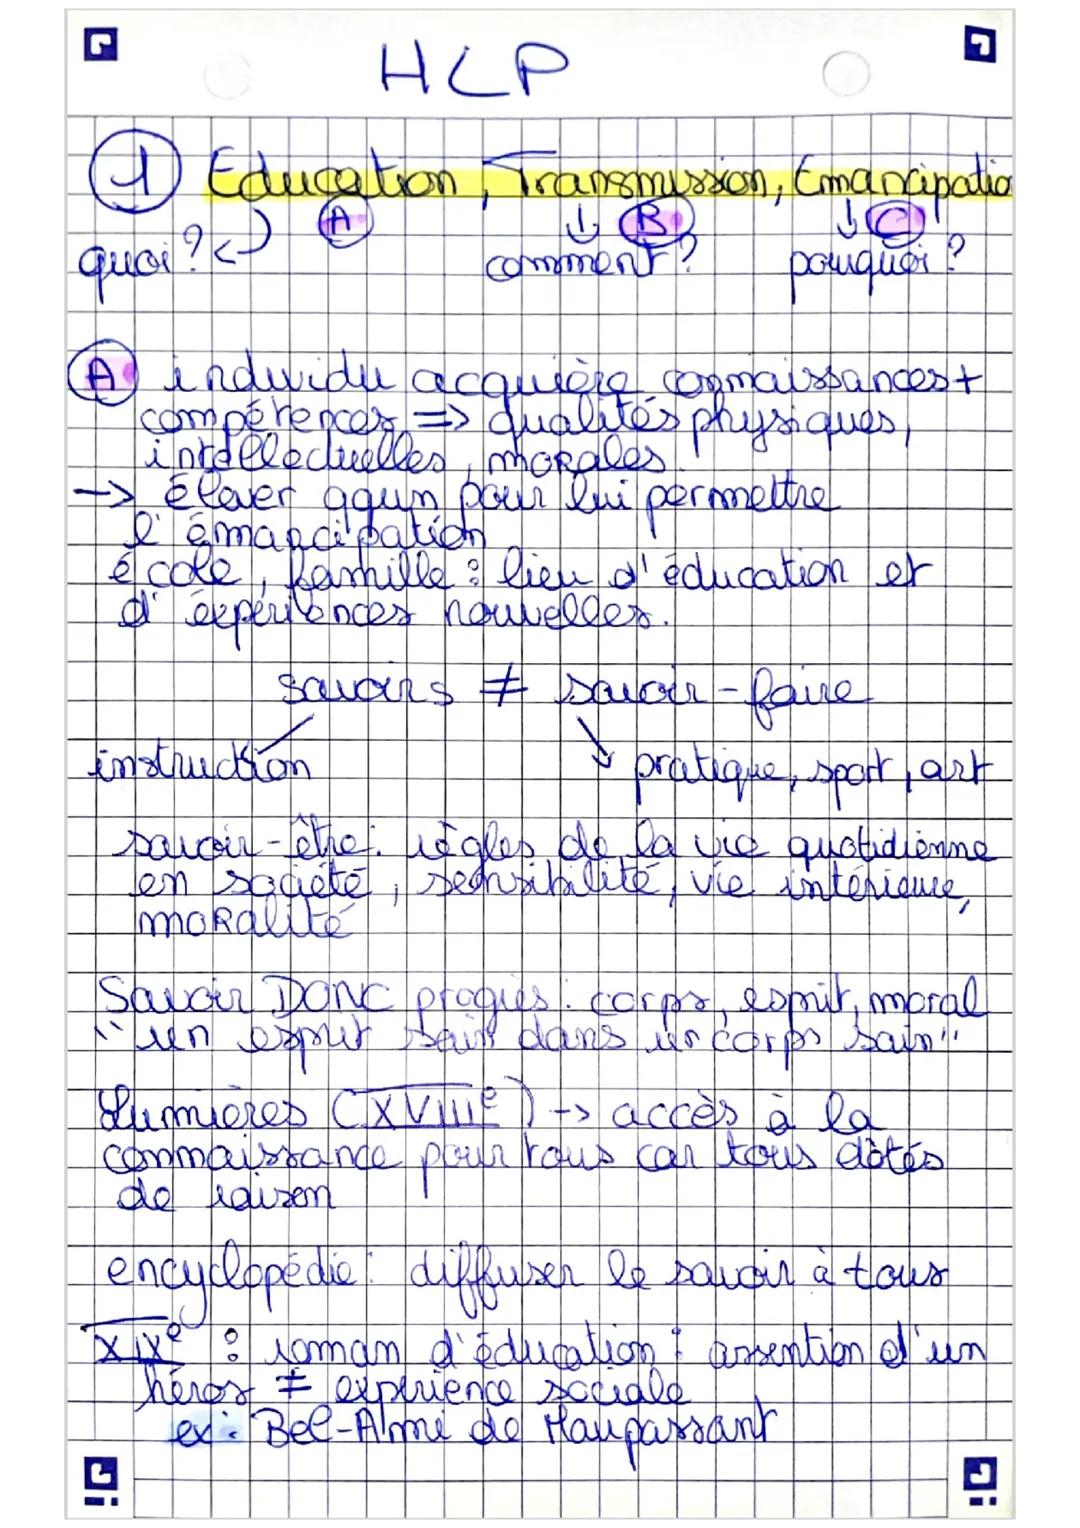 HLP
1 Education, Transmission, Emancipatio
A B C
quoi? comment? pourquoi?
A individu acquière connaissances +
compétences => qualités physiques,
intellectuelles, morales
-> élever qqun pour lui permettre
l'émancipation
école, famille : lieu d'éducation et
d'expériences nouvelles.
savoirs ≠ savoir-faire
instruction pratique, sport, art
savoir-être : règles de la vie quotidienne
en société, sensibilité, vie intérieure,
moralité
Savoir DONC progrès : corps, esprit, moral
"un esprit sain dans un corps sain"
Lumières (XVIIIe) -> accès à la
connaissance pour tous car tous dôtés
de raison
encyclopédie : diffuser le savoir à tous
XIXe : roman d'éducation : assention d'un
héros ≠ expérience sociale
ex : Bel-Ami de Maupassant